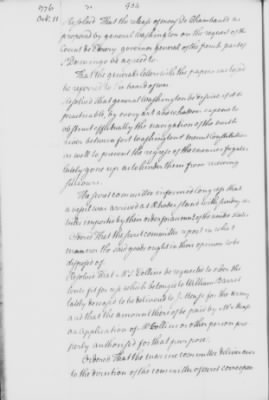 1776
Oct. 11
Resolved That the release of mons.r De Chambault as
proposed by general Washington on the request of the
Count de Emery governor general of the french part of
S.t Domingo be agreed to
That the general's letter with the papers enclosed
be referred to the board of war.
Resolved that general Washington be desired if it be
practicable, by every art and whatever expence to
obstruct effectually the navigation of the north
river between fort Washington & mount Constitution
as well to prevent the regress of the enemies frigates
lately gone up as to hinder them from receiving
succours.
The secret committee informed congress that
a vessel was arrived at Rhode island with sundry articles
imported by them on account of the united states
Ordered That the secret committee report in what
manner the said goods ought in their opinion to be
disposed of.
Resolved That Mr Collins be requested to
for which belongs to William Barrel
lately deceased to be delivered to for the army
and that the amount thereof be paid by
on application of Mr Collins or other person pro
perly authorised for that purpose.
Ordered That the marine committee deliver over
to the direction of the committee of secret correspon